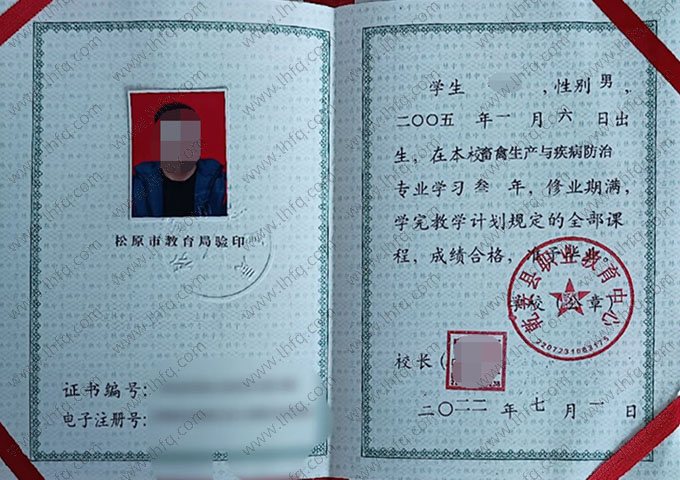 松原市教育局验印
证书编号:
电子注册号:
学生 ,性别 男,
二〇〇五 年 一 月 六 日出
生,在本校畜禽生产与疾病防治
专业学习 叁 年,修业期满,
学完教学计划规定的全部课
程,成绩合格,准予毕业。
乾安县职业教育中心
学校(公章)
2207231063175
校长(
二〇二二 年 七 月 一 日
www.1hfq.com